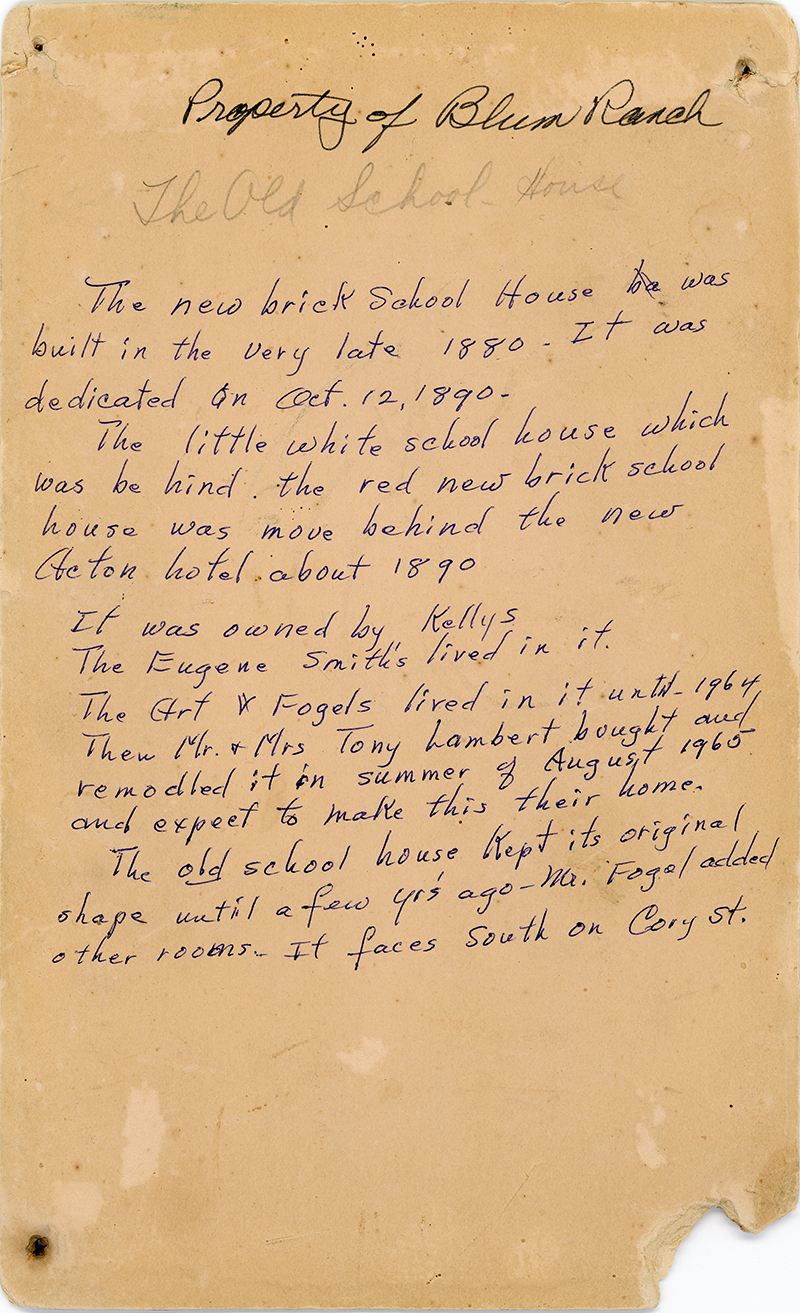 Property of Blum Ranch
The Old School-House
The new brick School House was
built in the very late 1880 - It was
dedicated on Oct. 12, 1890-
The little white school house which
was be hind. the red new brick school
house was move behind the new
Acton hotel. about 1890
It was owned by Kellys
The Eugene Smith's lived in it.
The Art Fogels lived in it until - 1964
Then Mr. + Mrs Tony Lambert bought and
remodled it in summer of August 1965
and expect to make this their home.
The old school house Kept its original
shape until a few yrs ago - Mr. Fogel added
other rooms. - It faces South on Cory St.